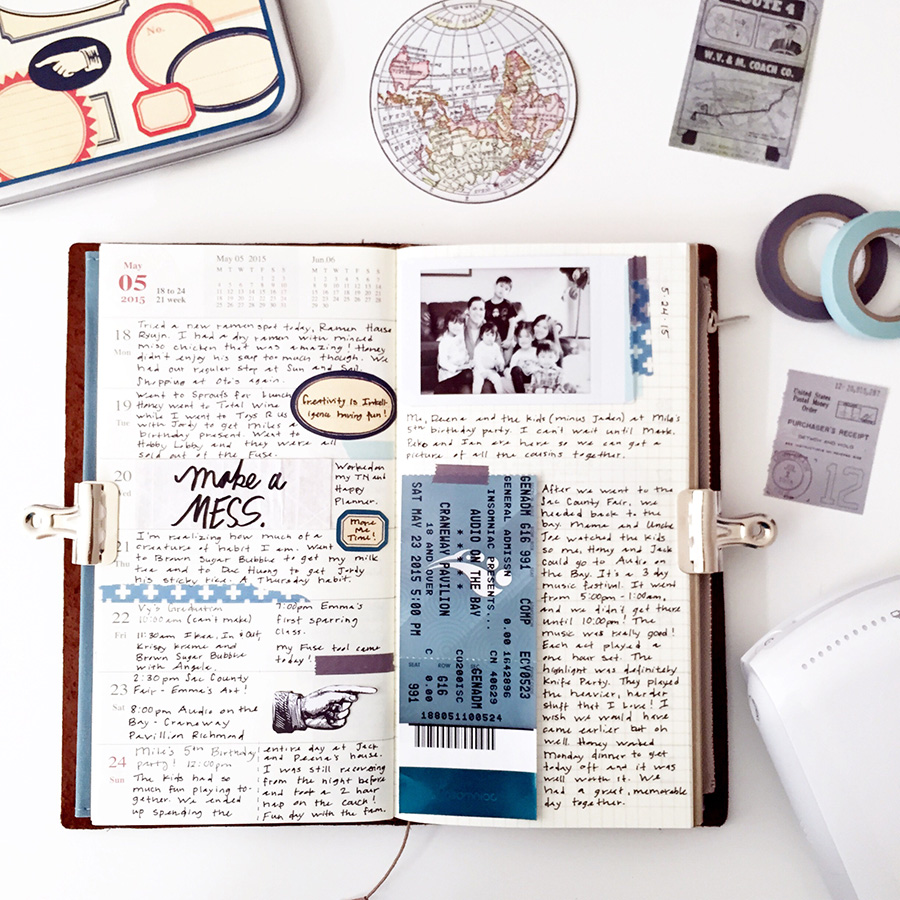 No.
ROUTE 4
W.V. & M. COACH CO.
12-20,815,207
United States
Postal Money
Order
PURCHASER'S RECEIPT
DETACH AND HOLD
12
May
05
2015
18 to 24
21 week
May 05 2015
M T W T F S S
Jun.06
M T W T F S S
18
Mon
Tried a new ramen spot today, Ramen House
Ryujin. I had a dry ramen with minced
miso chicken that was amazing! Honey
didn't enjoy his soup too much though. We
had our regular stop at Sun and Soil.
Shopping at Oto's again.
19
Tue
Went to Sprouts for lunch
Honey went to Total Wine
while I went to Toys R Us
with Jordy to get Miles a
birthday present. Went to
Hobby Lobby and they were all
sold out of the Fuse.
Creativity is Intell-
igence having fun!
20
Wed
make a
MESS.
Worked on
my TN and
Happy
Planner.
More
Me
Time!
21
Thu
I'm realizing how much of a
creature of habit I am. Went
to Brown Sugar Bubble to get my milk
tea and to Duc Huong to get Jordy
his sticky rice. A Thursday habit.
22
Fri
Vy's Graduation
10:00am (can't make)
11:30am Ikea, In & Out,
Krispy Kreme and
Brown Sugar Bubble
with Angele.
7:00pm Emma's
first sparring
class.
my Fuse tool came
today!
23
Sat
2:30pm Sac County
Fair - Emma's Art!
8:00pm Audio on the
Bay - Craneway
Pavillion Richmond
24
Sun
Mile's 5th Birthday
party! 12:00pm
The kids had so
much fun playing to-
gether. We ended
up spending the
entire day at Jack
and Deena's house.
I was still recovering
from the night before
and took a 2 hour
nap on the couch!
Fun day with the fam.
5.24.15
Me, Deena and the kids (minus Jaden) at Mile's
5th birthday party. I can't wait until Mark,
Peko and Ian are here so we can get a
picture of all the cousins together.
GENADM G16 991 COMP ECV0523
GENERAL ADMISSN 0.00 1642896
INSOMNIAC PRESENTS... CM 40629
AUDIO ON THE BAY
* * * * * GENADM
CRANEWAY PAVILION CO200ISC
18 AND OVER ROW G16
SAT MAY 23 2015 5:00 PM C 0.00
SEAT 991
188051100524
After we went to the
Sac County Fair, we
headed back to the
bay. Mama and Uncle
Joe watched the kids
so me, Honey and Jack
could go to Audio on
the Bay. It's a 3 day
music festival. It went
from 5:00pm - 1:00am,
and we didn't get there
until 10:00pm! The
music was really good!
Each act played a
one hour set. The
highlight was definitely
Knife Party. They played
the heavier, harder
stuff that I love! I
wish we would have
came earlier but oh
well. Honey worked
Monday dinner to get
today off and it was
well worth it. We
had a great, memorable
day together.